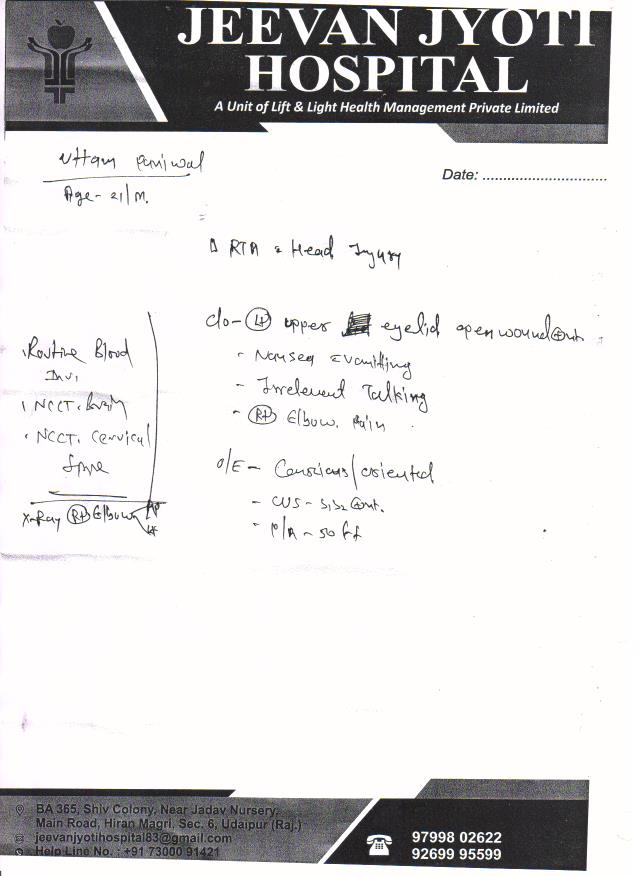 JEEVAN JYOTI
HOSPITAL
A Unit of Lift & Light Health Management Private Limited
Uttam
Date: ..............................
Age - 21/M.
Δ RTA c Head Injury
c/o - (Lt) upper eyelid open wound ⊕nt.
- Nausea c vomitting
- Irrelevent Talking
- (Rt) Elbow pain
Routine Blood
Inv.
NCCT. Brain
NCCT. Cervical
Spine
X-Ray (Rt) Elbow AP
Lt
O/E - Conscious/oriented
- CVS - S1S2 ⊕nt.
- P/A - soft
BA 365, Shiv Colony, Near Jadav Nursery,
Main Road, Hiran Magri, Sec. 6, Udaipur (Raj.)
jeevanjyotihospital83@gmail.com
Help Line No. : +91 73000 91421
97998 02622
92699 95599